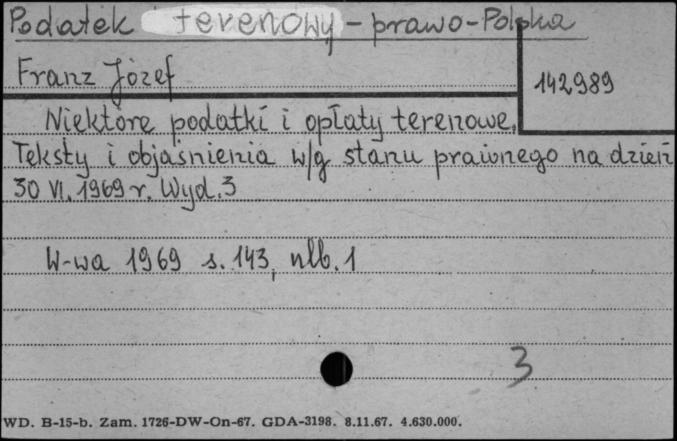 Podatek terenowy - prawo - Polska
Franz Józef
142989
Niektóre podatki i opłaty terenowe.
Teksty i objaśnienia w/g stanu prawnego na dzień
30 VI. 1969 r. Wyd. 3
W-wa 1969 s. 143, nlb. 1
3
WD. B-15-b. Zam. 1726-DW-On-67. GDA-3198. 8.11.67. 4.630.000.